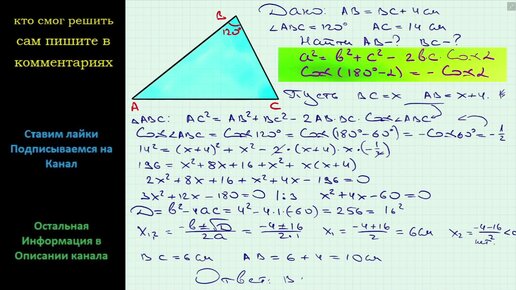 кто смог решить
сам пишите в
комментариях
Ставим лайки
Подписываемся на
Канал
Остальная
Информация в
Описании канала
B
120°
A
C
Дано: AB = BC + 4 см
∠ABC = 120° AC = 14 см
Найти AB - ? BC - ?
a² = b² + c² - 2bc · Cos α
Cos (180° - α) = - Cos α
Пусть BC = x AB = x + 4.
△ABC: AC² = AB² + BC² - 2 AB · BC · Cos∠ABC
Cos∠ABC = Cos 120° = Cos (180° - 60°) = - Cos 60° = - 1/2
14² = (x+4)² + x² - 2 · (x+4) · x · (- 1/2)
196 = x² + 8x + 16 + x² + x(x+4)
2x² + 8x + 16 + x² + 4x - 196 = 0
3x² + 12x - 180 = 0 | : 3 x² + 4x - 60 = 0
D = b² - 4ac = 4² - 4 · 1 · (-60) = 256 = 16²
x₁,₂ = (-b ± √D)/2a = (-4 ± 16)/2·1 x₁ = (-4 + 16)/2 = 6 см x₂ = (-4 - 16)/2 < 0
BC = 6 см AB = 6 + 4 = 10 см
Ответ: B